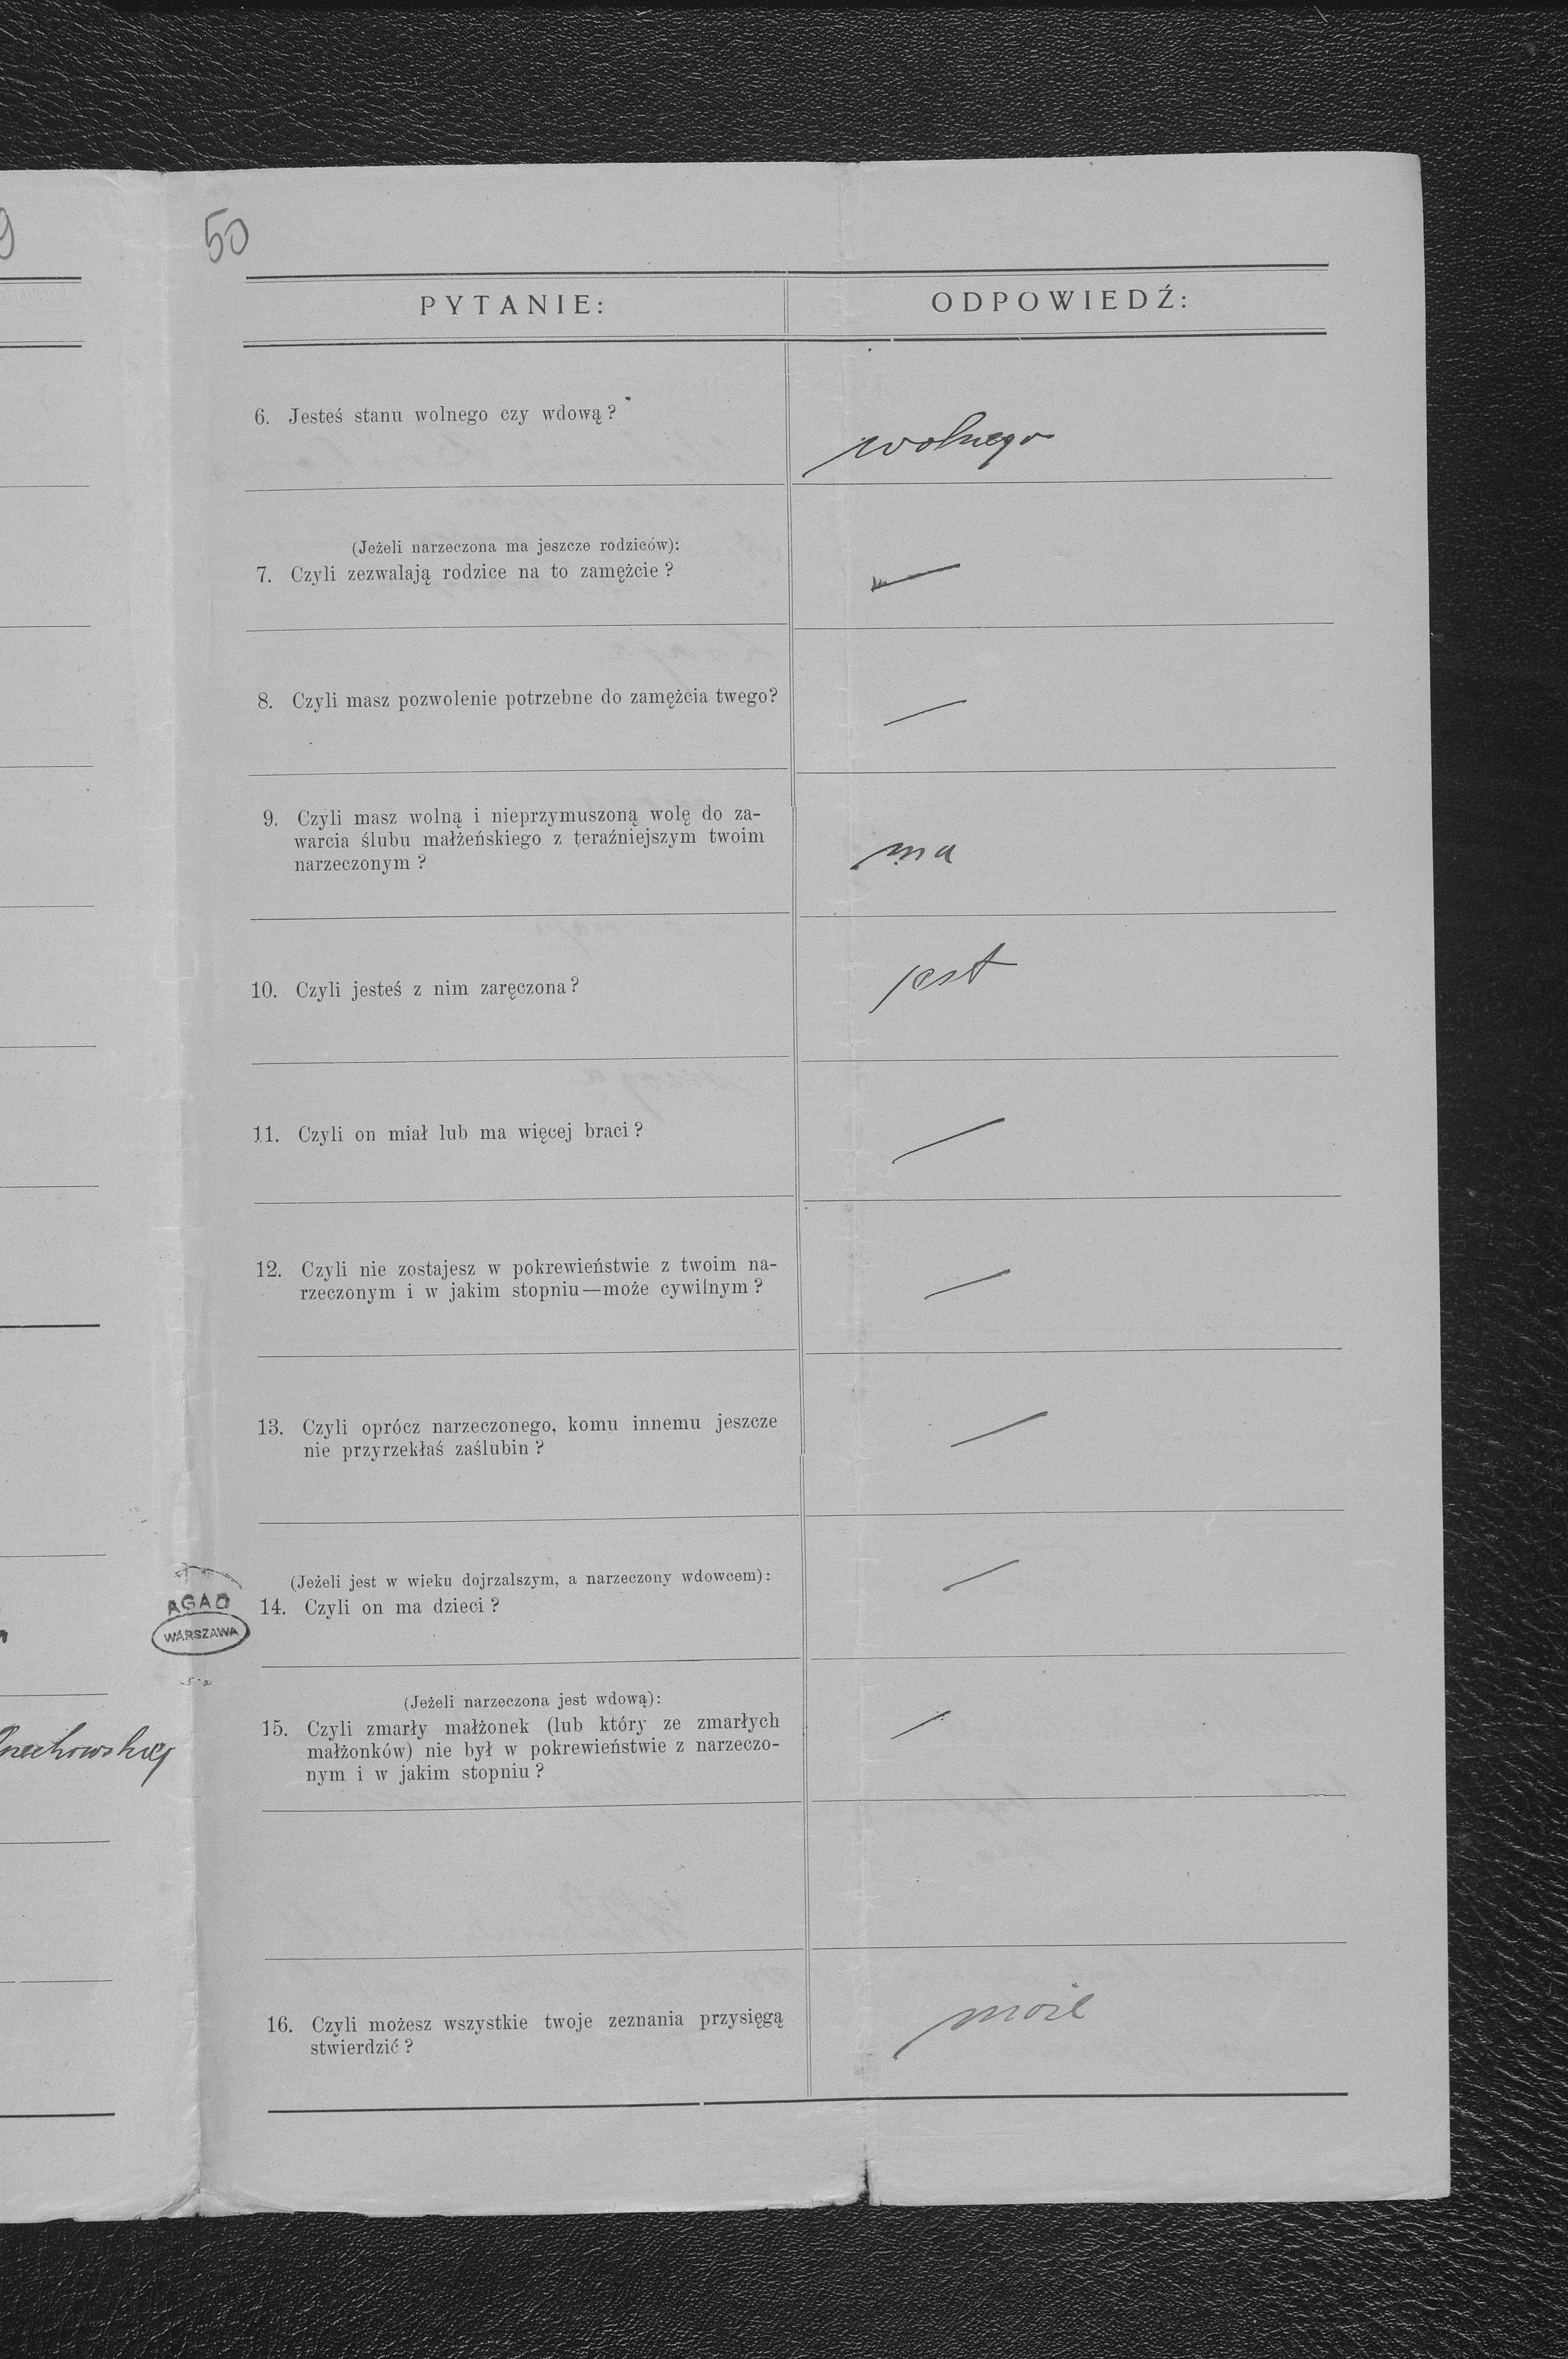 50
PYTANIE:
ODPOWIEDŹ:
6. Jesteś stanu wolnego czy wdową?
wolnego
(Jeżeli narzeczona ma jeszcze rodziców):
7. Czyli zezwalają rodzice na to zamężcie?
—
8. Czyli masz pozwolenie potrzebne do zamężcia twego?
—
9. Czyli masz wolną i nieprzymuszoną wolę do za-
warcia ślubu małżeńskiego z teraźniejszym twoim
narzeczonym?
ma
10. Czyli jesteś z nim zaręczona?
jest
11. Czyli on miał lub ma więcej braci?
—
12. Czyli nie zostajesz w pokrewieństwie z twoim na-
rzeczonym i w jakim stopniu—może cywilnym?
—
13. Czyli oprócz narzeczonego, komu innemu jeszcze
nie przyrzekłaś zaślubin?
—
(Jeżeli jest w wieku dojrzalszym, a narzeczony wdowcem):
14. Czyli on ma dzieci?
—
AGAD
WARSZAWA
(Jeżeli narzeczona jest wdową):
15. Czyli zmarły małżonek (lub który ze zmarłych
małżonków) nie był w pokrewieństwie z narzeczo-
nym i w jakim stopniu?
—
16. Czyli możesz wszystkie twoje zeznania przysięgą
stwierdzić?
może